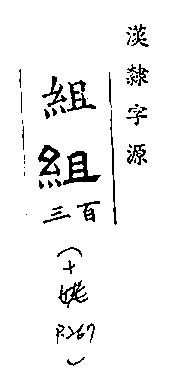 漢隸字源
組
組
三百
(十
P.267
)